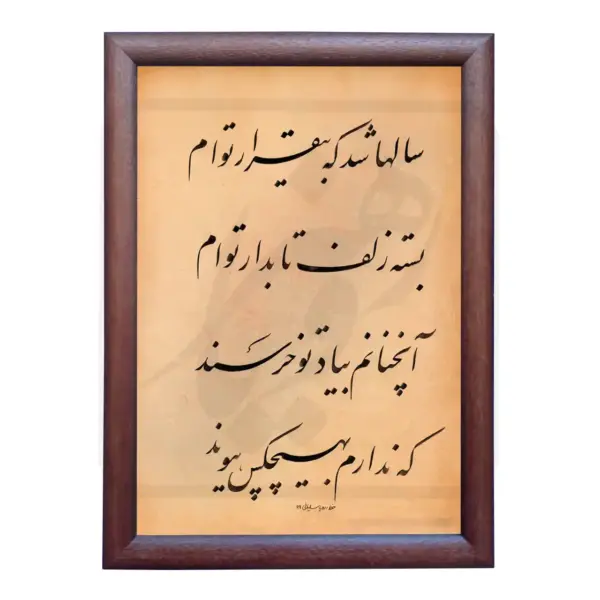 سالها شد که بیقرار توام
بسته زلف تابدار توام
آنچنانم بیاد تو خرسند
که ندارم بهیچکس پیوند